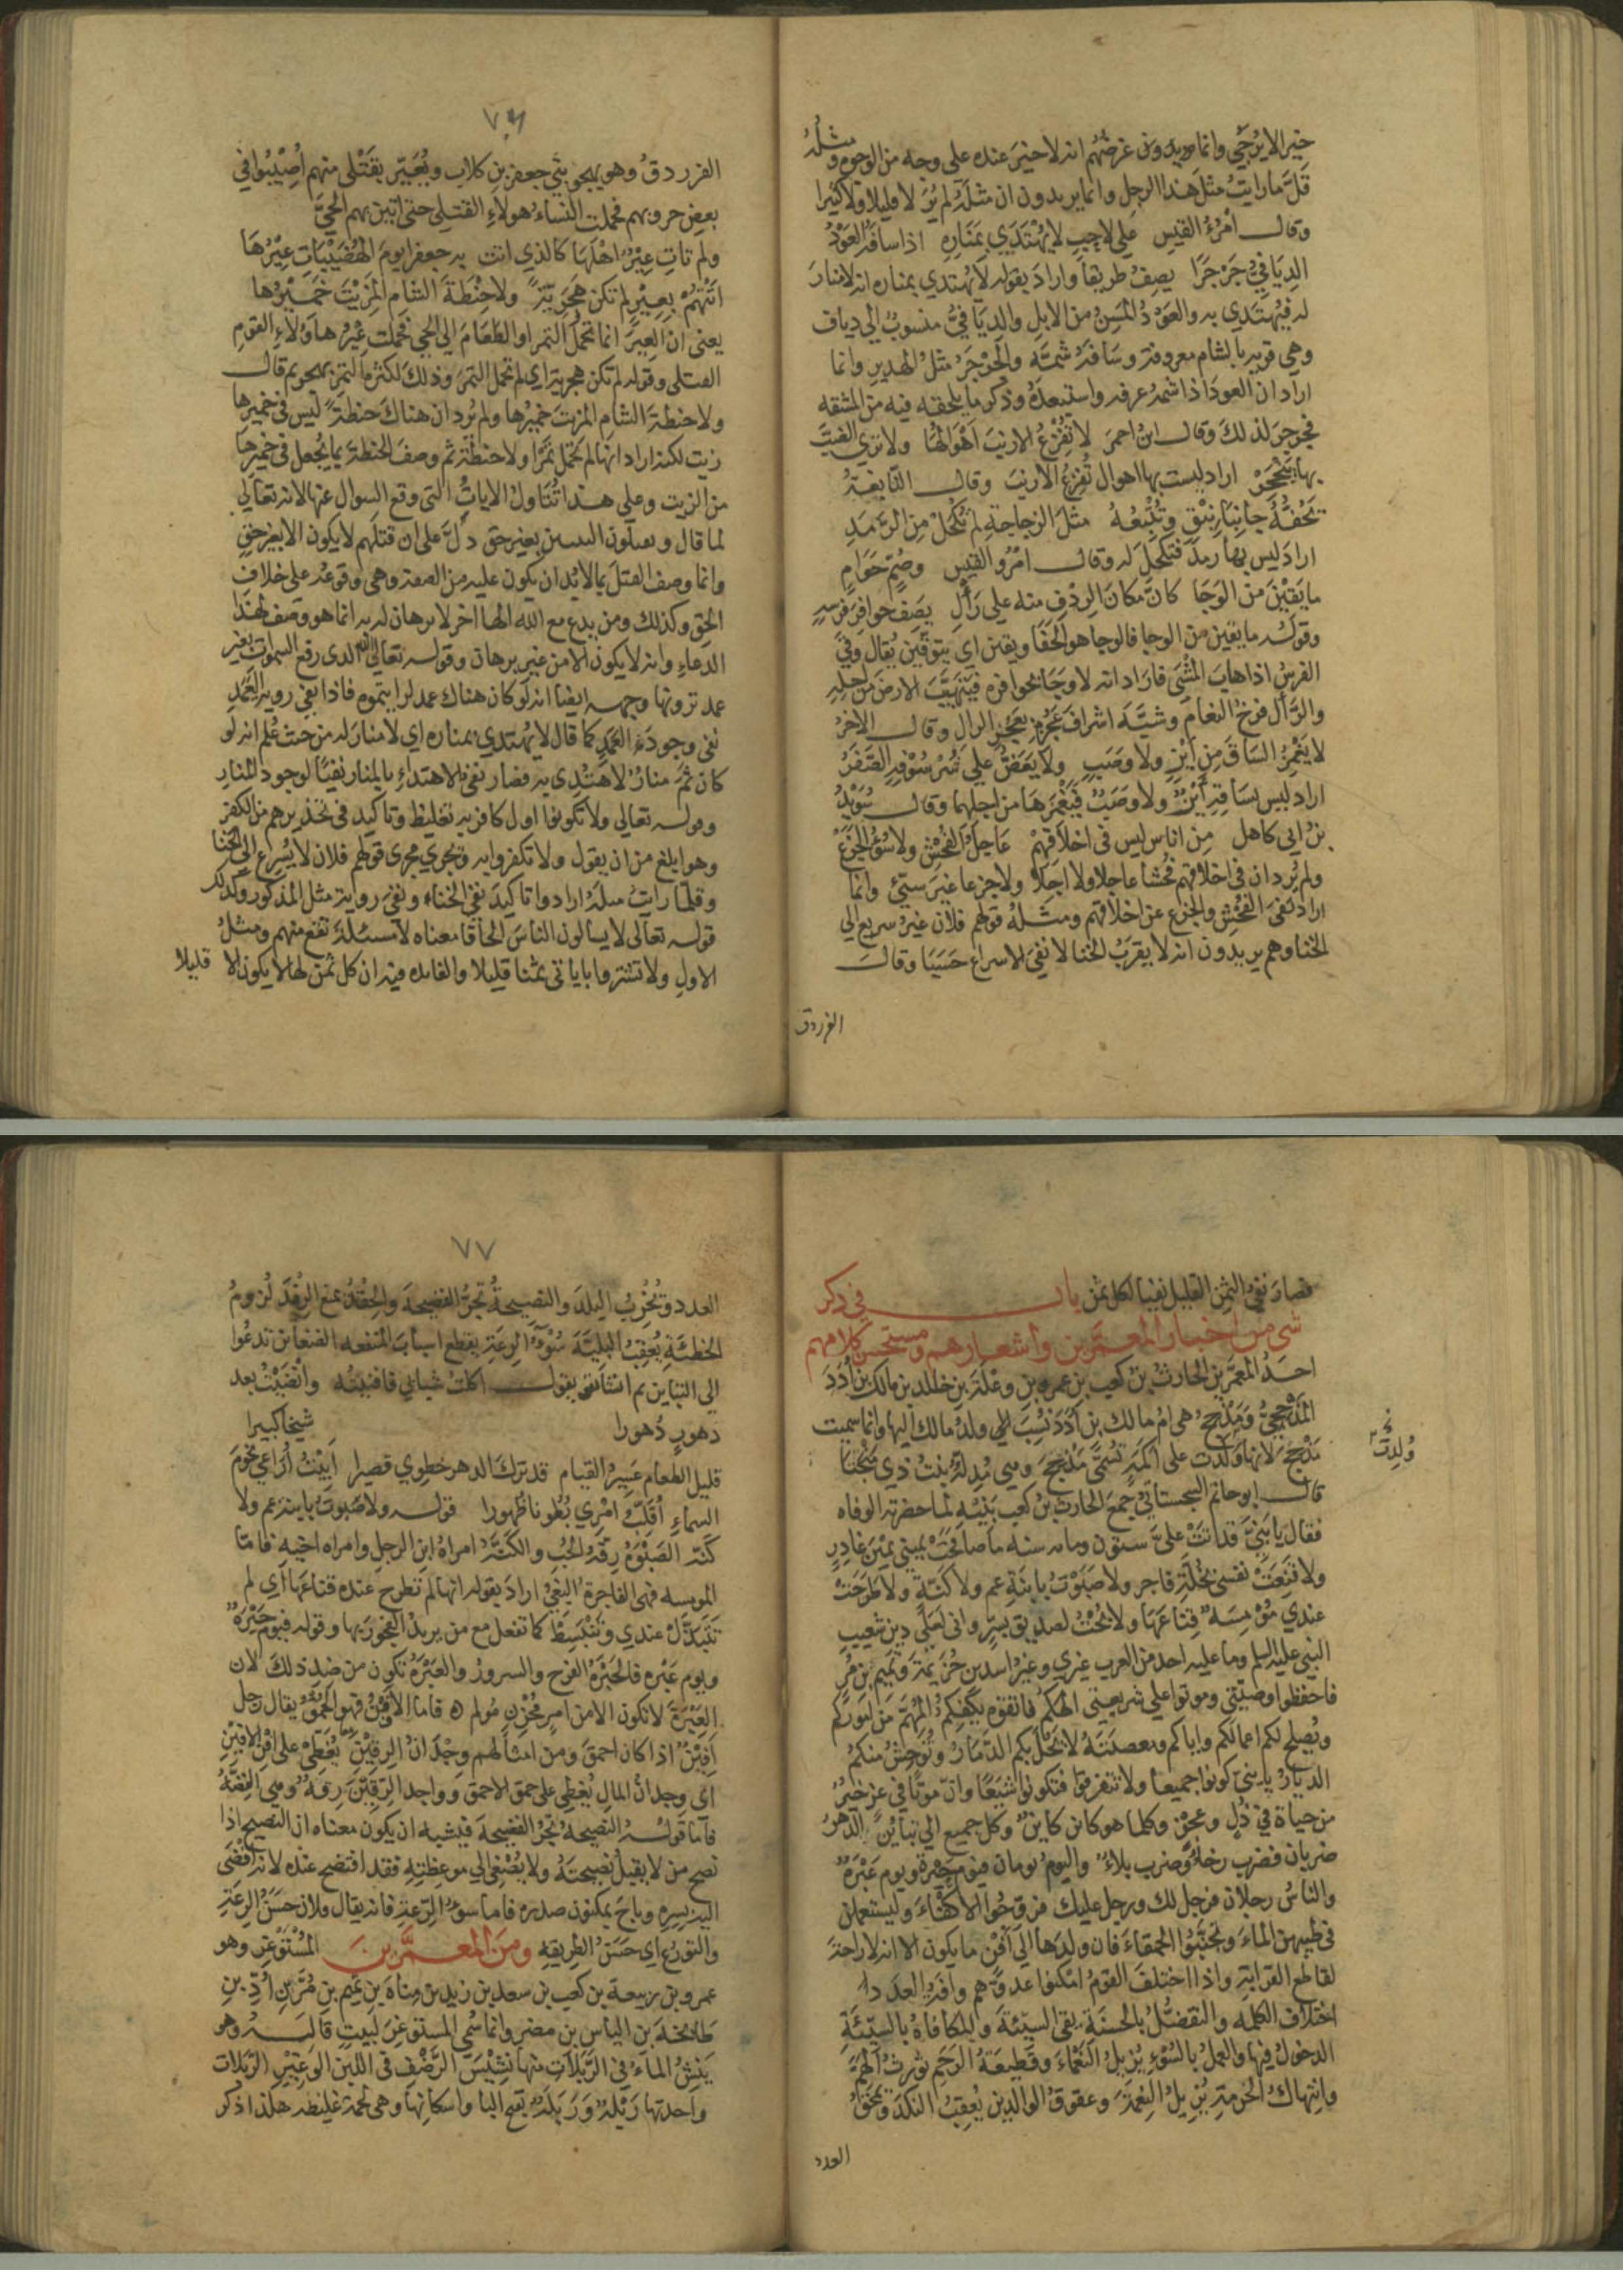 خير الا يرجى وانما يريدون غرضهم انه لا خير عنده على وجه من الوجوه ومثله
قل ما رايت مثل هذا الرجل وانما يريدون ان مثله لم ير لا قليلا ولا كثيرا
وقال امرؤ القيس على لاحب لا يهتدي بمناره اذا سافه العود
الديافي جرجرا يصف طريقا واراد بقوله لا يهتدي بمناره انه لا منار
له فيهتدي به والعود المسن من الابل والديافي منسوب الى دياف
وهي قرية بالشام معروفة وسافه شمه والجرجر مثل الهدير وانما
اراد ان العود اذا شمه عرفه واستبعده وذكر ما يلحقه فيه من المشقه
فجرجر لذلك وقال ابن احمر لا تفزع الارنب اهوالها ولا ترى الضب
بها ينجحر اراد ليست بها اهوال تفزع الارنب وقال النابغة
تحفه جانبا نيق وتتبعه مثل الزجاجة لم تكحل من الرمد
اراد ليس بها رمد فتكحل له وقال امرؤ القيس وصم حوام
ما يقين من الوجا كان مكان الردف منه على رال يصف حوافر فرسه
وقوله ما يقين من الوجا فالوجا هو الحفا ويقين اي يتوقين يقال وقى
الفرس اذا هاب المشي فاراد انه لا وجا بحوافره فيتهيب الارض من اجله
والرأل فرخ النعام وشبه اشراف عجزه بعجز الرال وقال الاخر
لا يغمز الساق من اين ولا وصب ولا يعض على شرسوفه الصفر
اراد ليس بساقه اين ولا وصب فيغمزها من اجلهما وقال سويد
بن ابي كاهل من اناس ليس في اخلاقهم عاجل الفحش ولا سوء الجزع
ولم يرد ان في اخلاقهم فحشا عاجلا ولا اجلا ولا جزعا غير سيئ وانما
اراد نفى الفحش والجزع عن اخلاقهم ومثله قولهم فلان غير سريع الى
الخنا وهم يريدون انه لا يقرب الخنا لا نفي الاسراع حسبا وقال
الفرزدق
٧٦
الفرزدق وهو يهجو بني جعفر بن كلاب ويعير بقتلى منهم اصيبوا في
بعض حروبهم فحملت النساء هولاء القتلى حتى اتين بهم الحي
ولم تات عير اهلها كالذي اتت به جعفرا يوم الهضيبات عيرها
اتتهم بعير لم تكن هجرية ولا حنطة الشام المزيت خميرها
يعنى ان العير انما تحمل التمر او الطعام الى الحي فحملت عير هاولاء القوم
القتلى وقوله لم تكن هجرية اي لم تحمل التمر وذلك لكثرة التمر بهجر ثم قال
ولا حنطة الشام المزيت خميرها ولم يرد ان هناك حنطة ليس في خميرها
زيت لكنه اراد انها لم تحمل تمرا ولا حنطة ثم وصف الحنطة بما يجعل في خميرها
من الزيت وعلى هذا تتاول الايات التي وقع السوال عنها لانه تعالى
لما قال ويقتلون النبيين بغير حق دل على ان قتلهم لا يكون الا بغير حق
وانما وصف القتل بما لا بد ان يكون عليه من الصفة وهي وقوعه على خلاف
الحق وكذلك ومن يدع مع الله الها اخر لا برهان له به انما هو وصف لهذا
الدعاء وانه لا يكون الا من غير برهان وقوله تعالى الله الذي رفع السموات بغير
عمد ترونها وجهه ايضا انه لو كان هناك عمد لرايتموه فاذا نفى رويه العمد
نفى وجود العمد كما قال لا يهتدي بمناره اي لا منار له من حيث علم انه لو
كان ثم منار لاهتدي به فصار نفى الاهتداء بالمنار نفيا لوجود المنار
وقوله تعالى ولا تكونوا اول كافر به تغليظ وتاكيد في تحذيرهم من الكفر
وهو ابلغ من ان يقول ولا تكفروا به ويجري مجرى قولهم فلان لا يسرع الى الخنا
وقلما رايت مثله ارادوا تاكيد نفي الخناء ونفي رويه مثل المذكور وكذلك
قوله تعالى لا يسالون الناس الحافا معناه لا مسئلة تقع منهم ومثل
الاول ولا تشتروا باياتي ثمنا قليلا والفائده فيه ان كل ثمن لها لا يكون الا قليلا
فصار نفي الثمن القليل نفيا لكل ثمن باب في ذكر
شي من اخبار المعمرين واشعارهم ومستحسن كلامهم
احد المعمرين الحارث بن كعب بن عمرو بن وعلة بن خالد بن مالك بن ادد
المذحجي ومذحج هي ام مالك بن ادد نسب الى ولد مالك اليها وانما سميت
مذحج لانها ولدت على اكمة تسمى مذحج وهي مدلة بنت ذي منجشان
ولدت
قال ابو حاتم السجستاني جمع الحارث بن كعب بنيه لما حضرته الوفاه
فقال يا بني قد اتت علي ستون ومايه سنه ما صافحت يميني يمين غادر
ولا قنعت نفسي بخلة فاجر ولا صبوت بابنة عم ولا كنة ولا طرحت
عندي مومسة قناعها ولا بحت لصديق بسر واني لعلى دين شعيب
النبي عليه السلم وما عليه احد من العرب غيري وغير اسد بن خزيمة وتميم بن مر
فاحفظوا وصيتي وموتوا على شريعتي الهكم فاتقوه يكفكم المهم من اموركم
ويصلح لكم اعمالكم واياكم ومعصيته لا يحل بكم الدمار ويوحش منكم
الديار يا بني كونوا جميعا ولا تتفرقوا فتكونوا شيعا وان موتا في عز خير
من حياة في ذل وعجز وكلما هو كاين كاين وكل جميع الى تباين الدهر
ضربان فضرب رخاء وضرب بلاء واليوم يومان فيوم حبرة ويوم عبرة
والناس رجلان فرجل لك ورجل عليك فزوجوا الاكفاء وليستعملن
في طيبهن الماء وتجنبوا الحمقاء فان ولدها الى افن ما يكون الا انه لا راحة
لقاطع القرابة واذا اختلف القوم امكنوا عدوهم وافة العدد
اختلاف الكلمه والتفضل بالحسنة يقي السيئة والمكافاة بالسيئة
الدخول فيها والعمل بالسوء يزيل النعماء وقطيعة الرحم تورث الهم
وانتهاك الحرمة يزيل النعمة وعقوق الوالدين يعقب النكد ويمحق
العدد
٧٧
العدد ويخرب البلد والنصيحة تجر الفضيحة والحقد يمنع الرفد لزوم
الخطئة يعقب البلية سوء الرعة يقطع اسباب المنفعه الضغائن تدعوا
الى التباين ثم انشا يقول اكلت شبابي فافنيته وانضيت بعد
دهور دهورا شيخا كبيرا
قليل الطعام عسير القيام قد ترك الدهر خطوي قصيرا ابيت اراعي نجوم
السماء اقلب امري بطونا ظهورا قوله ولا صبوت بابنة عم ولا
كنة الصبوة رقة الحب والكنة امراة ابن الرجل وامراه اخيه فاما
المومسه فهي الفاجرة البغي اراد بقوله انها لم تطرح عنده قناعها اي لم
تتبذل عندي وتنبسط كما تفعل مع من يريد الفجور بها وقوله فيوم حبرة
ويوم عبره فالحبرة الفرح والسرور والعبرة تكون من ضد ذلك لان
العبرة لا تكون الا من امر محزن مولم فاما الافن فهو الحمق يقال رجل
افين اذا كان احمق ومن امثالهم وجدان الرقين يغطى على افن الافين
اي وجدان المال يغطي على حمق الاحمق وواحد الرقين رقة وهي الفضة
فاما قوله النصيحه تجر الفضيحة فيشبه ان يكون معناه ان النصيح اذا
نصح من لا يقبل نصيحته ولا يصغى الى موعظته فقد افتضح عنده لانه افضى
اليه بسره وباح بمكنون صدره فاما سوء الرعة فانه يقال فلان حسن الرعة
والتورع اي حسن الطريقه ومن المعمرين المستوغر وهو
عمرو بن ربيعة بن كعب بن سعد بن زيد بن مناة بن تميم بن مر بن اد بن
طابخة بن الياس بن مضر وانما سمي المستوغر لبيت قاله وهو
ينش الماء في الربلات منها نشيش الرضف في اللبن الوغير الربلات
واحدتها ربلة وربلة بفتح البا واسكانها وهي لحمة غليظه هكذا ذكر